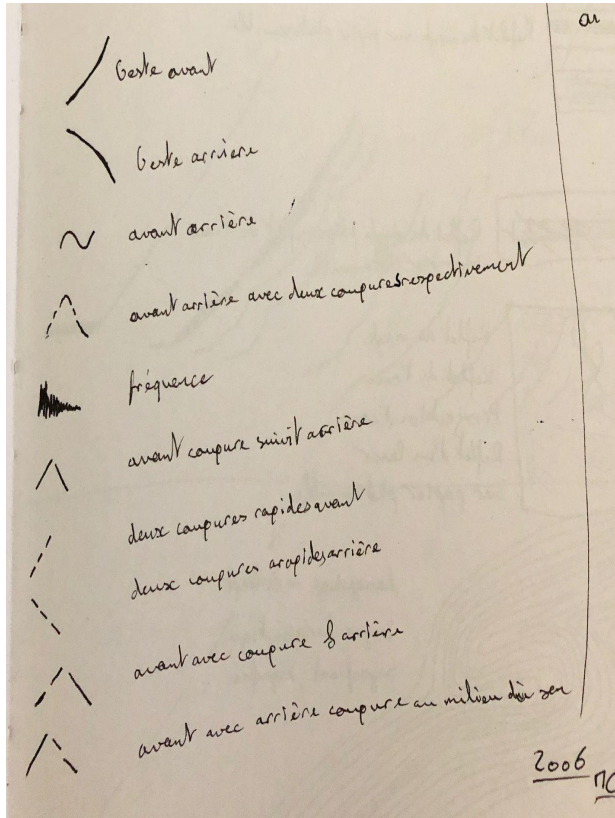 Geste avant
Geste arrière
avant arrière
avant arrière avec deux coupures respectivement
fréquence
avant coupure suivit arrière
deux coupures rapides avant
deux coupures arapides arrière
avant avec coupure & arrière
avant avec arrière coupure au milieu
2006